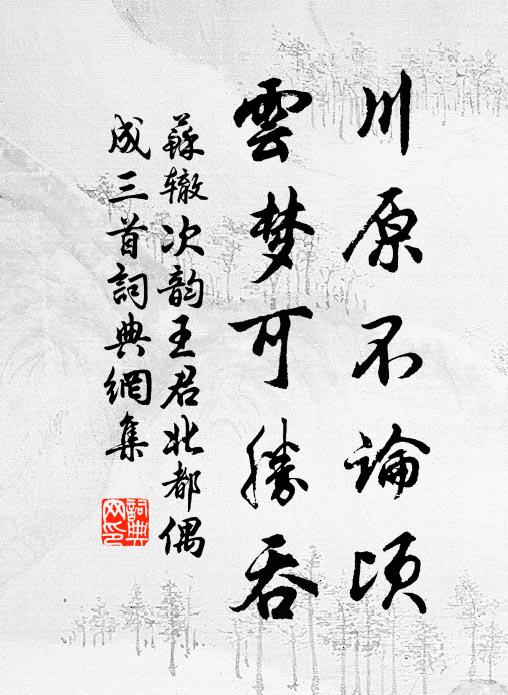 川原不論頃
雲梦可勝吞
蘇辙次韵王君北都偶
成三首詞典網集
詞典
网印